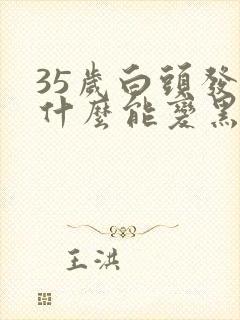 35歲白頭發
什麼能變黑
王洪